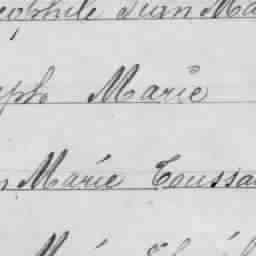 eophile Jean Ma
eph Marie
n Marie Toussa